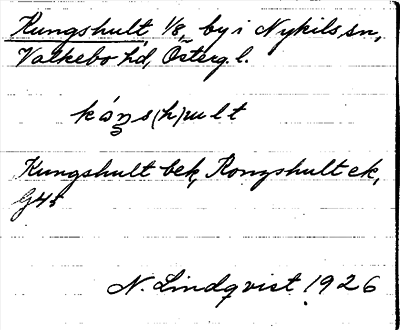 Kungshult 1/8, by i Nykils sn,
Valkebo hd, Österg. l.
kóŋs(h)ult
Kungshult bek, Kongshult ek,
G45
N. Lindqvist 1926